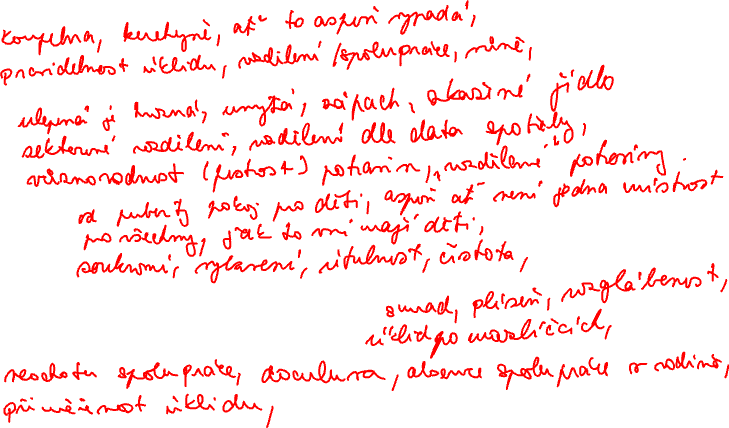 koupelna, kuchyně, ať to aspoň vypadá,
pravidelnost úklidu, rozdělení /spolupráce, míně,
ulepená je hnusná, umytá, zápach, zkažené jídlo
sektorové rozdělení, rozdělení dle data spotřeby,
různorodnost (pestrost) potravin, "rozdělené" potraviny.
od puberty pokoj pro děti, aspoň ať není jedna místnost
pro všechny, jak to mí mají děti,
soukromí, vybavení, útulnost, čistota,
smrad, plíseň, rozhrabanost,
úklid po mazlíčcích,
neochota spolupráce, docultura, absence spolupráce v rodině,
přiměřenost úklidu,